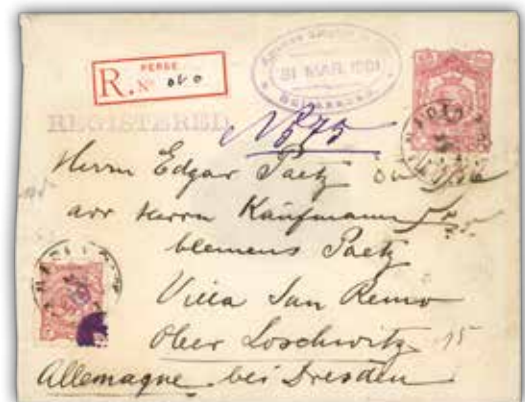 PERSE
R. No
31 MAR. 1901
REGISTERED
No 575
Herrn Edgar Paetz
adr Herrn Kaufmann
Clemens Paetz
Villa San Remo
Ober Loschwitz 15
Allemagne bei Dresden